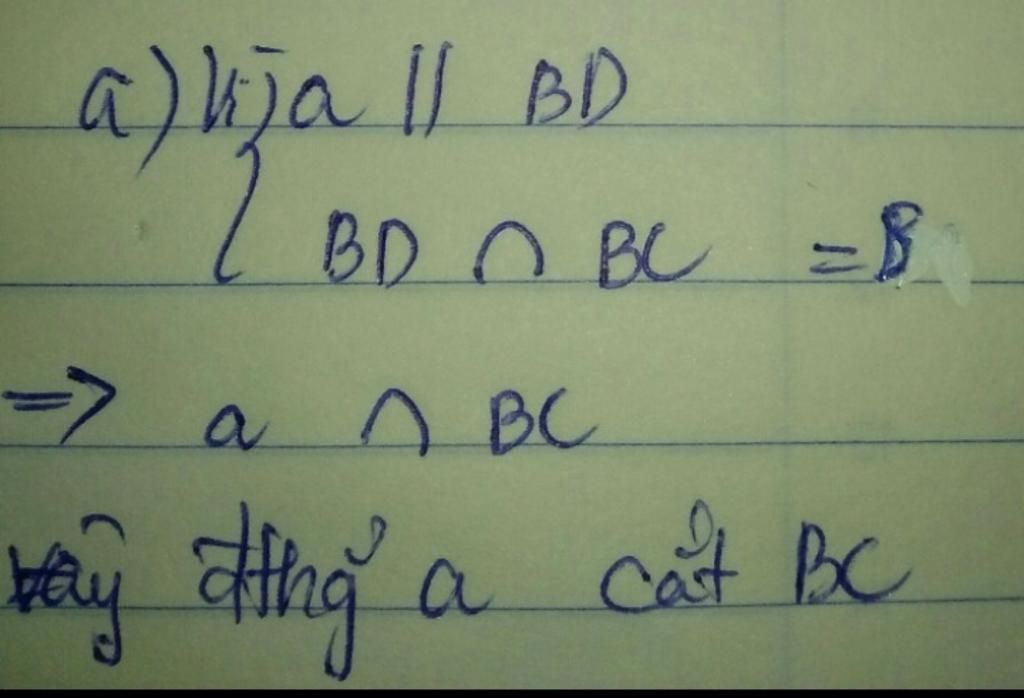 a) Vì a // BD
{ BD ∩ BC = B
=> a ∩ BC
Vậy đthg̉ a cắt BC